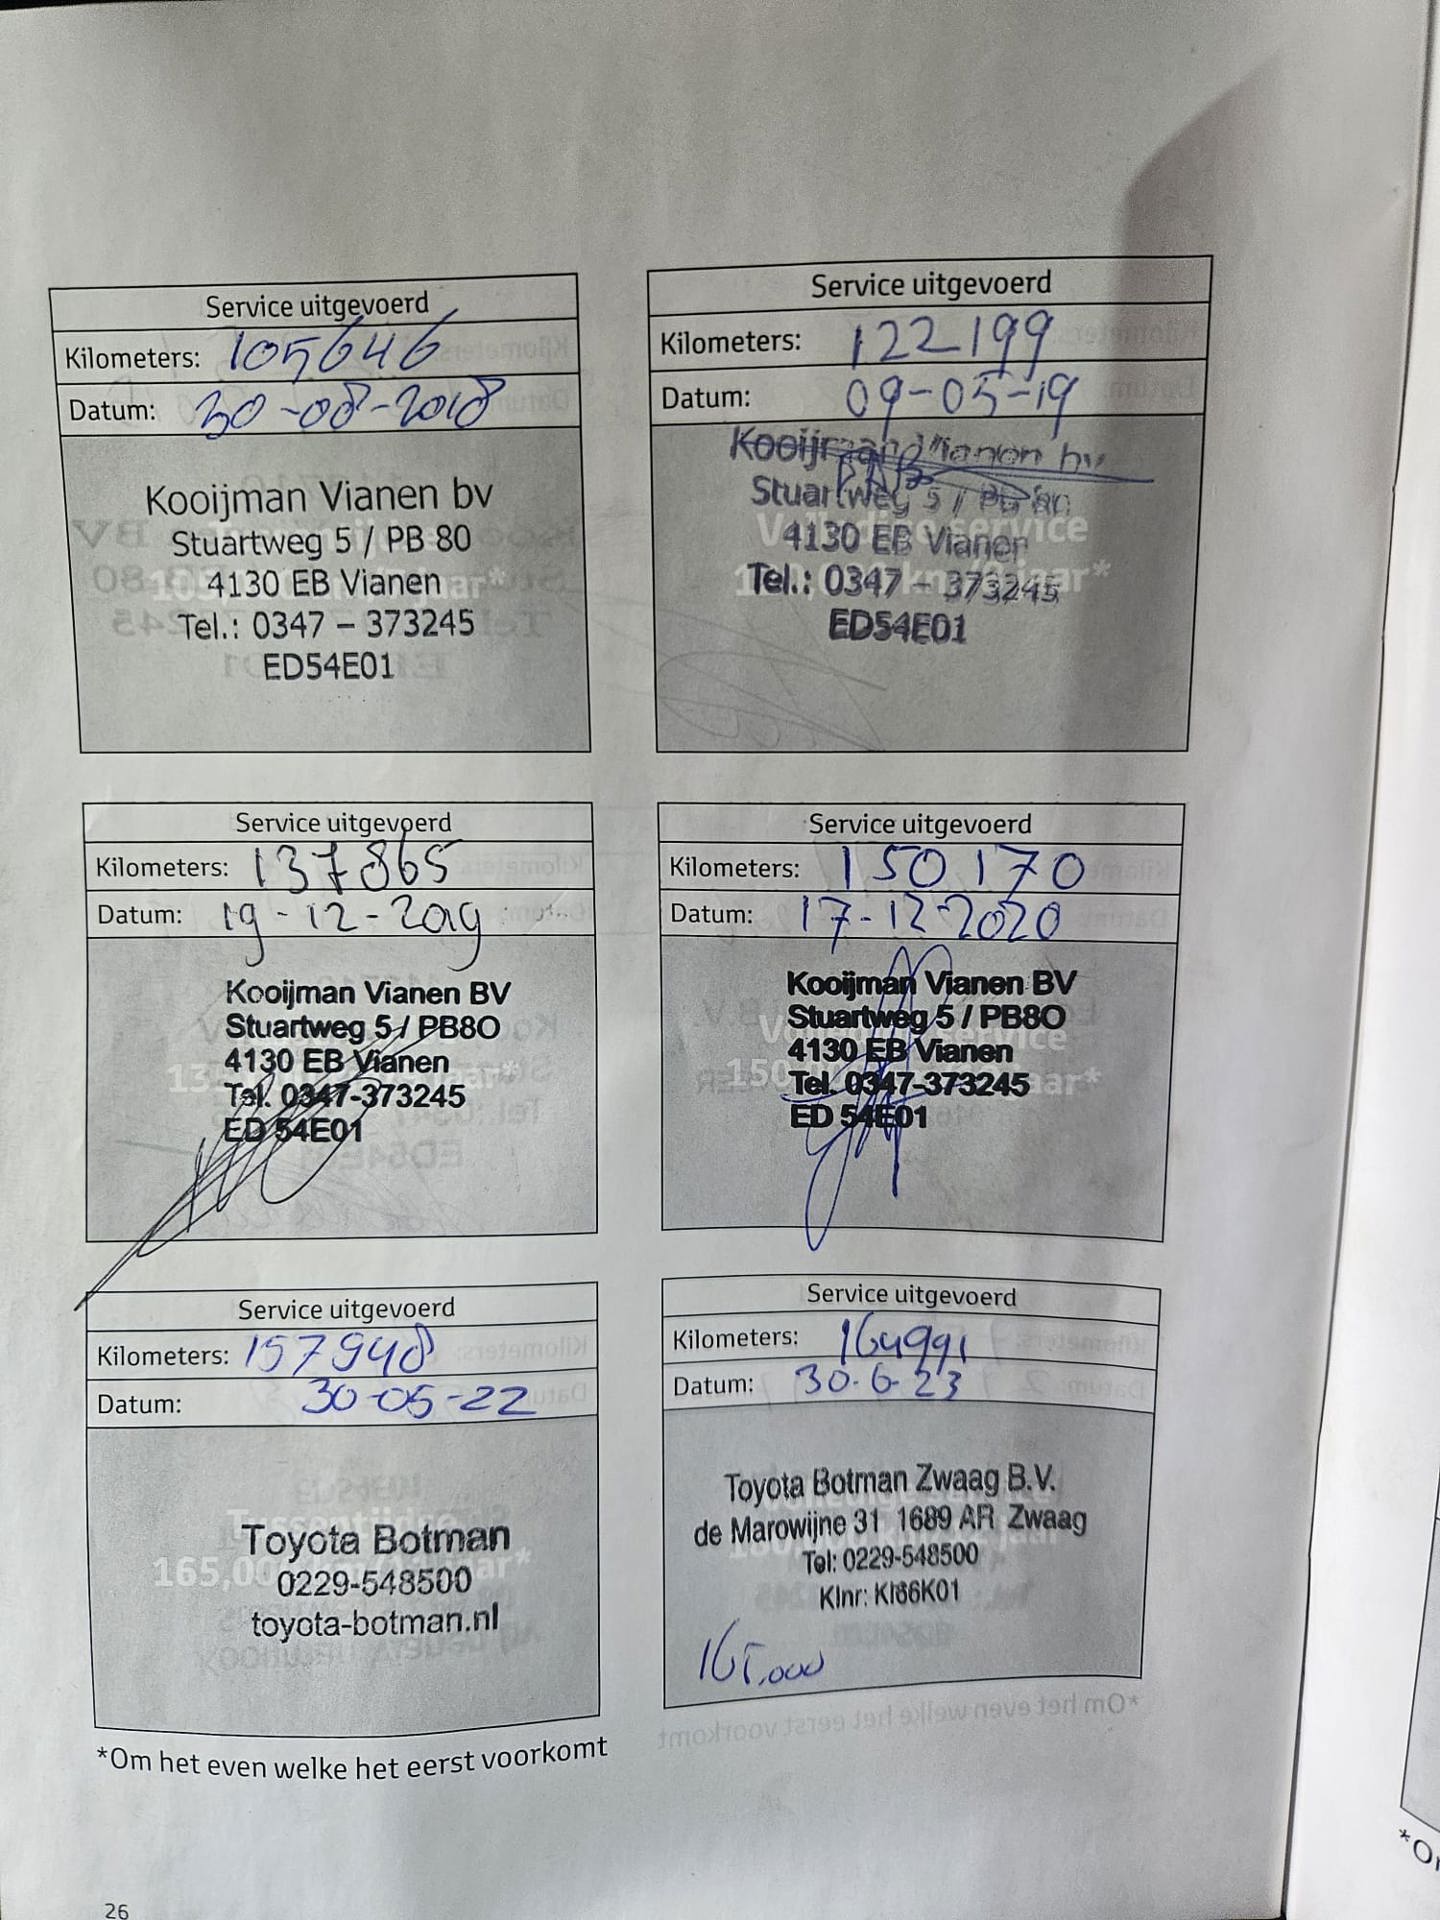 Service uitgevoerd
Kilometers: 105646
Datum: 30-08-2018
Kooijman Vianen bv
Stuartweg 5 / PB 80
4130 EB Vianen
Tel.: 0347 – 373245
ED54E01
Service uitgevoerd
Kilometers: 122199
Datum: 09-05-19
Kooijman Vianen bv
Stuartweg 5 / PB 80
Volledige service
4130 EB Vianen
Tel.: 0347 – 373245
jaar*
ED54E01
Service uitgevoerd
Kilometers: 137865
Datum: 19-12-2019
Kooijman Vianen BV
Stuartweg 5 / PB8O
4130 EB Vianen
Tel. 0347-373245
ED 54E01
Service uitgevoerd
Kilometers: 150170
Datum: 17-12-2020
Kooijman Vianen BV
Stuartweg 5 / PB8O
4130 EB Vianen
Tel. 0347-373245
ED 54E01
Service uitgevoerd
Kilometers: 157948
Datum: 30-05-22
Tussentijdse
Toyota Botman
165,00 jaar*
0229-548500
toyota-botman.nl
Service uitgevoerd
Kilometers: 164991
Datum: 30-6-23
Toyota Botman Zwaag B.V.
de Marowijne 31 1689 AR Zwaag
Tel: 0229-548500
Klnr: KI66K01
165,000
*Om het even welke het eerst voorkomt
26